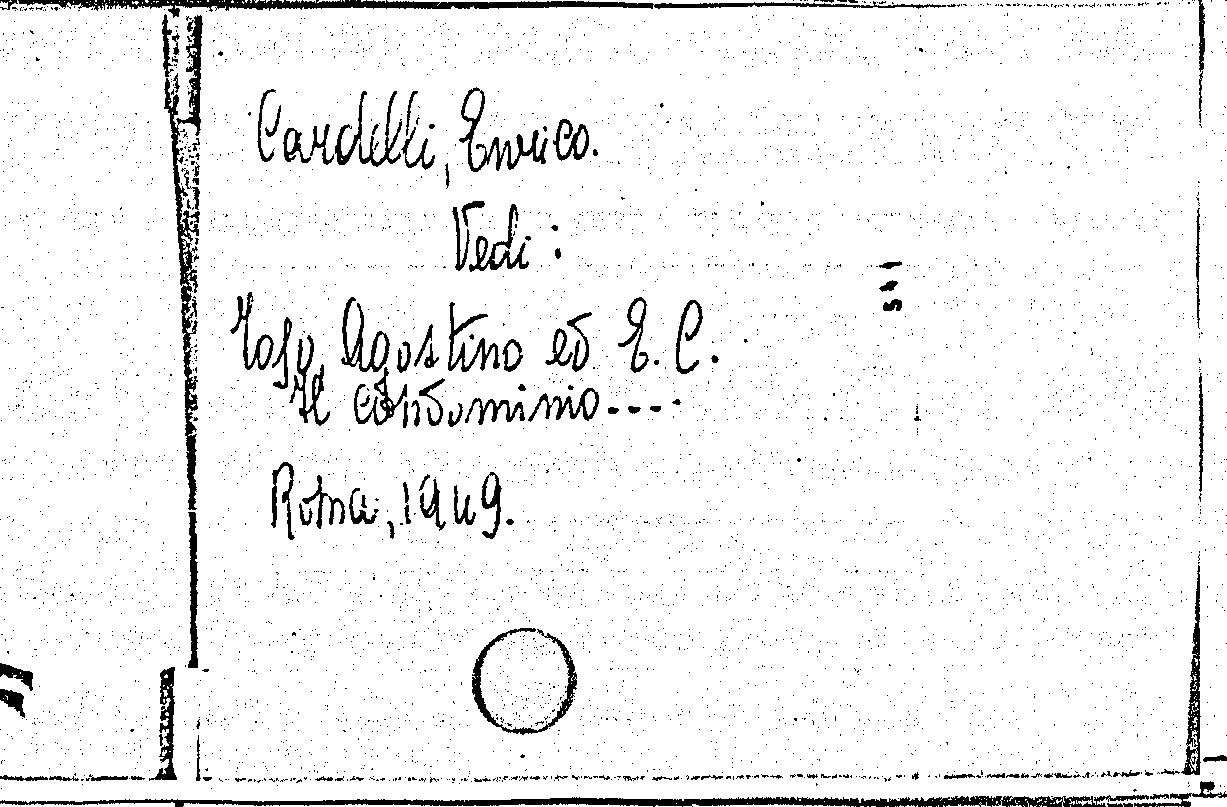 Cardelli, Enrico.
Vedi :
Toso, Agostino ed E. C.
Il condominio....
Roma, 1949.